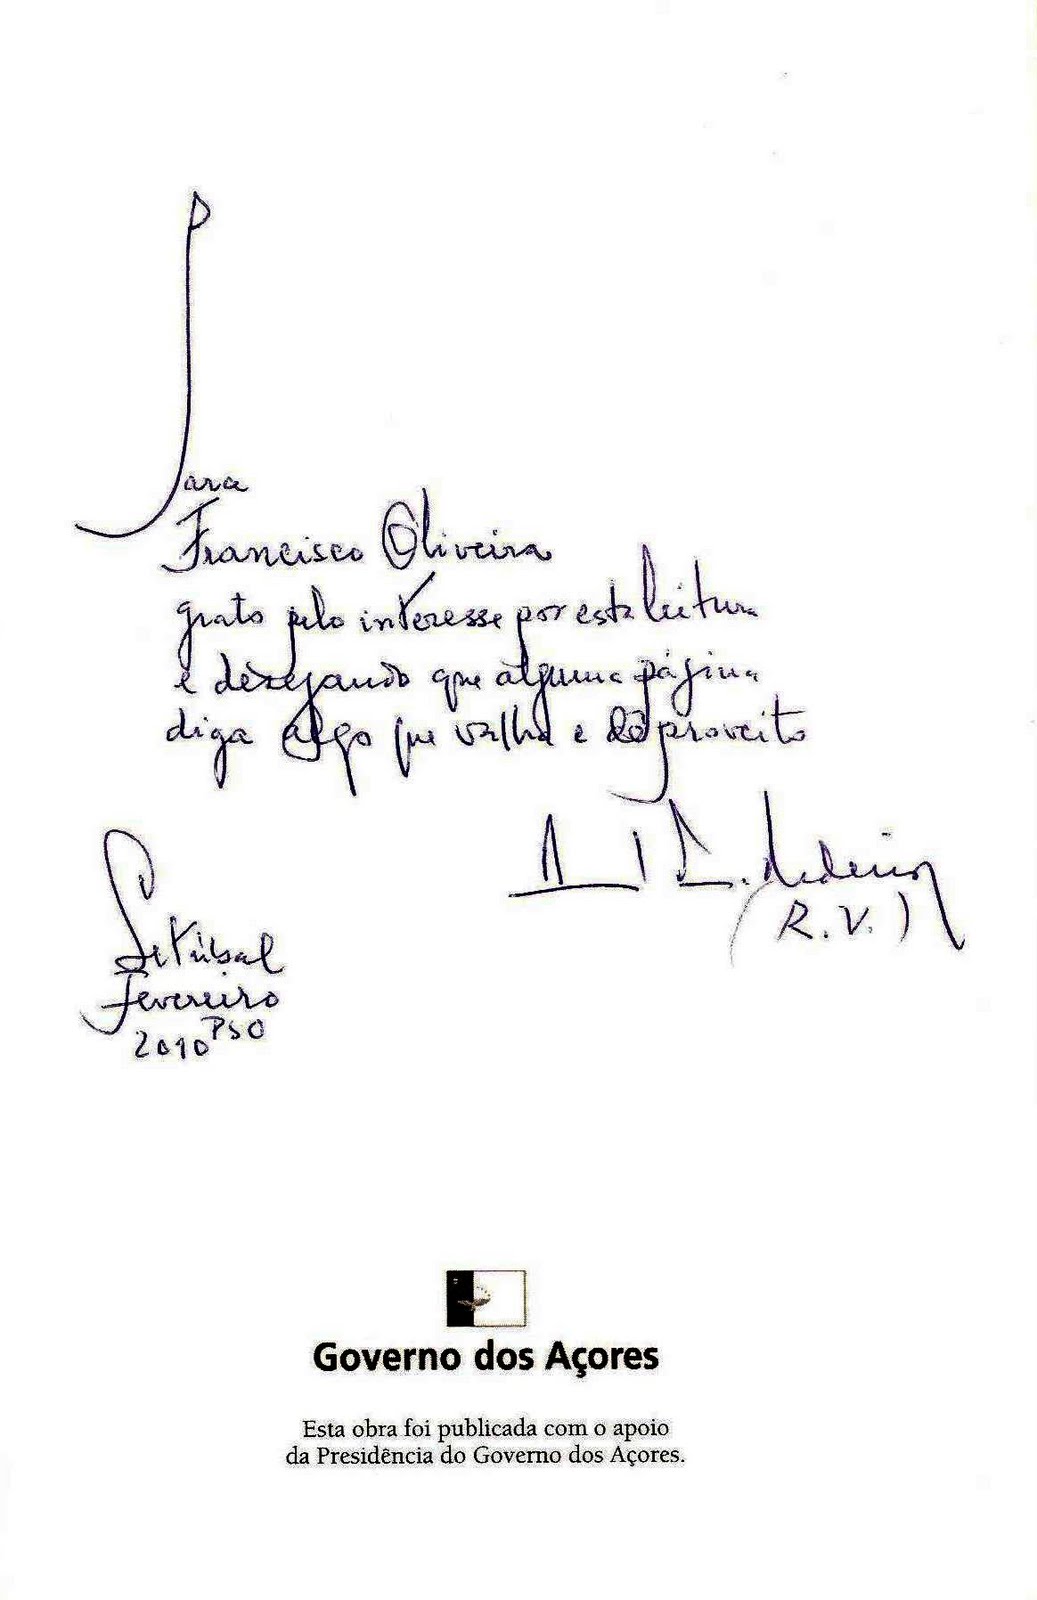 Para
Francisco Oliveira
grato pelo interesse por esta leitura
e desejando que alguma página
diga algo que valha e dê proveito
Medeiros
(R.V.)
Setúbal
Fevereiro
2010 PSO
Governo dos Açores
Esta obra foi publicada com o apoio
da Presidência do Governo dos Açores.